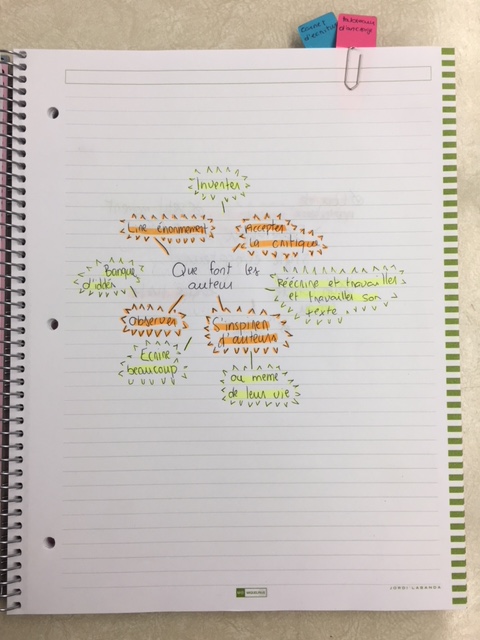 Carnet
d'écriture
Inventer
Lire énormément
Accepter
la critique
Que font les
auteur
Banque
d'idées
Réécrire et travailler
et travailler son
texte
Observer
S'inspirer
d'auteurs
Écrire
beaucoup
ou même
de leur vie
JORDI LABANDA